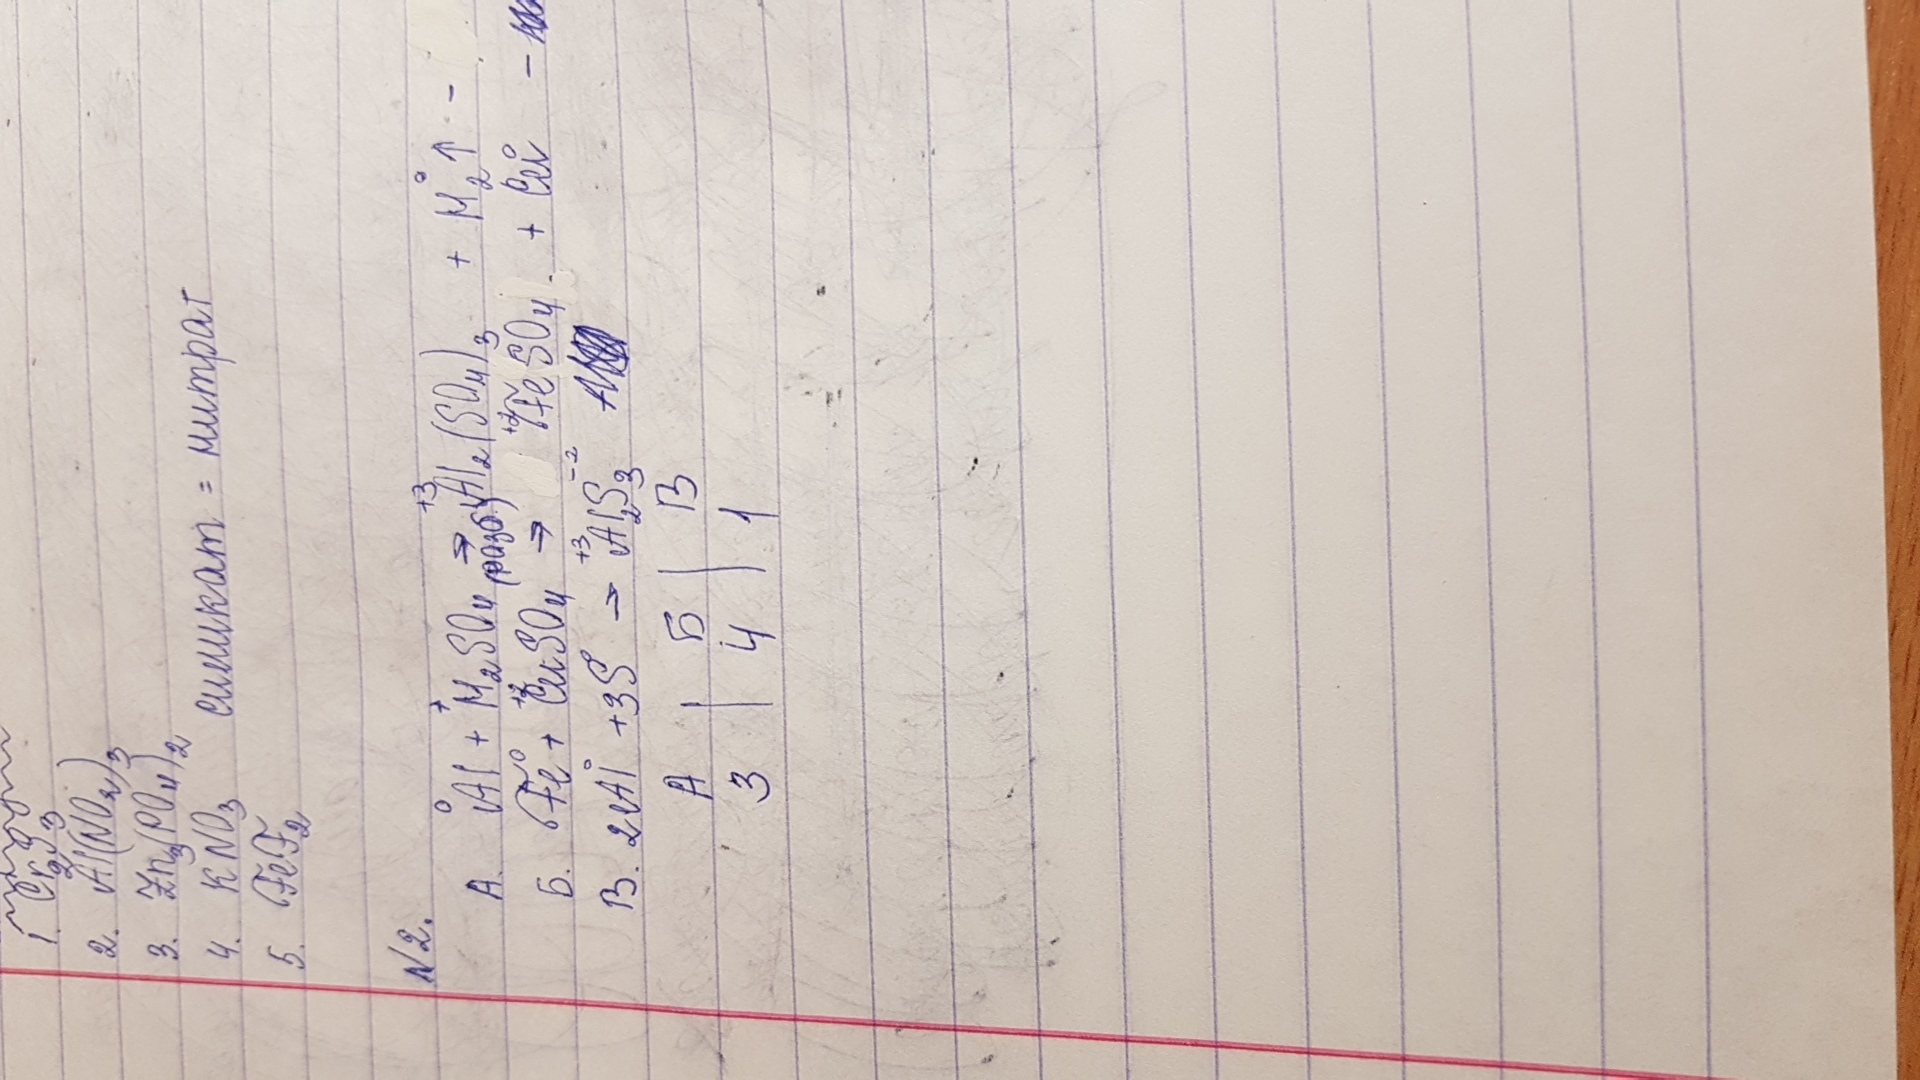 1. Cr2S3
2. Al(NO2)3
3. Zn3(PO4)2
4. KNO3 силикат = нитрат
5. FeF2
N2.
А. Al⁰ + H⁺2SO4 → (разб) Al⁺³2(SO4)3 + H⁰2↑ -
Б. Fe⁰ + Cu⁺²SO4 → Fe⁺²SO4 + Cu⁰ -
В. 2Al⁰ + 3S⁰ → Al⁺³2S⁻²3
А | Б | В
3 | 4 | 1